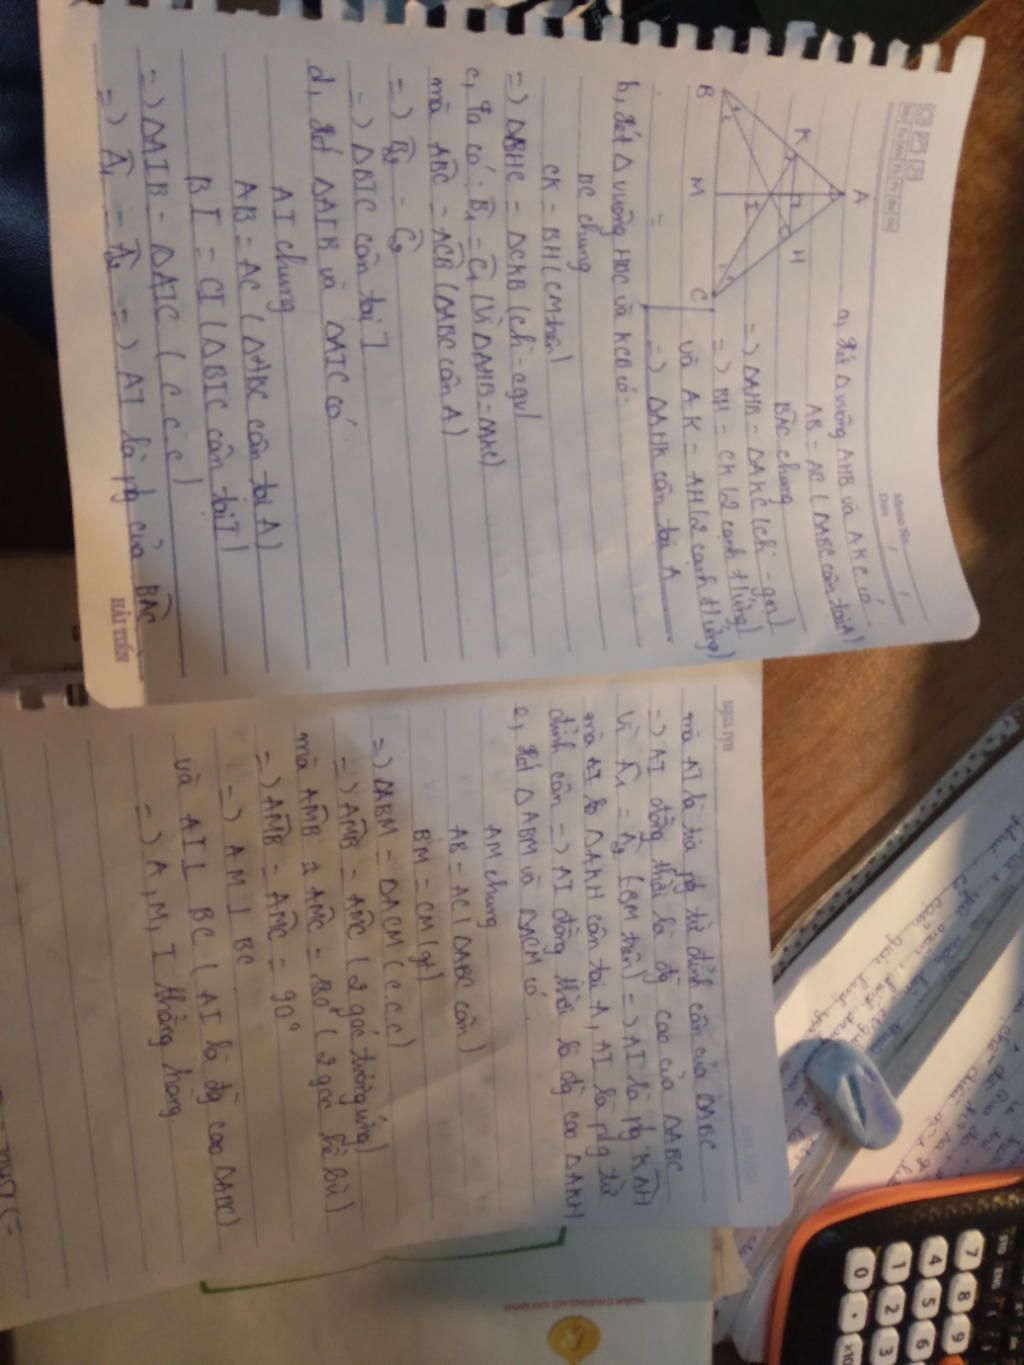 Memo No.
Date / /
a, Xét Δ vuông AHB và AKC có
AB = AC (ΔABC cân tại A)
BAC chung
=> ΔAHB = ΔAKC (ch - gn)
=> BH = CK (2 cạnh t/ứng)
và AK = AH (2 cạnh t/ứng)
=> ΔAHK cân tại A
A
K
H
I
B
M
C
b, Xét Δ vuông HBC và KCB có:
BC chung
CK = BH (CM trên)
=> ΔBHC = ΔCKB (ch - cgv)
c, Ta có: B1 = C1 (Vì ΔAHB = ΔAKC)
mà ABC = ACB (ΔABC cân A)
=> B2 = C2
=> ΔBIC cân tại I
d, Xét ΔAIB và ΔAIC có
AI chung
AB = AC (ΔABC cân tại A)
BI = CI (ΔBIC cân tại I)
=> ΔAIB = ΔAIC (c.c.c)
=> A1 = A2 => AI là pg của BAC
HẢI TIẾN
mà AI là tia pg từ đỉnh cân của ΔABC
=> AI đồng thời là đg cao của ΔABC
Vì A1 = A2 (BM trên) => AI là pg KAH
mà AI là ΔAKH cân tại A, AI là p/g từ
đỉnh cân => AI đồng thời là đg cao ΔAKH
e, Xét ΔABM và ΔACM có
AM chung
AB = AC (ΔABC cân)
BM = CM (gt)
=> ΔABM = ΔACM (c.c.c)
=> AMB = AMC (2 góc tương ứng)
mà AMB + AMC = 180° (2 góc kề bù)
=> AMB = AMC = 90°
=> AM ⊥ BC
và AI ⊥ BC (AI là đg cao ΔABC)
=> A, M, I thẳng hàng
HUÂN CHƯƠNG HỒ CHÍ MINH
STO ENG
7 8 9
4 5 6
1 2 3
0 • x10